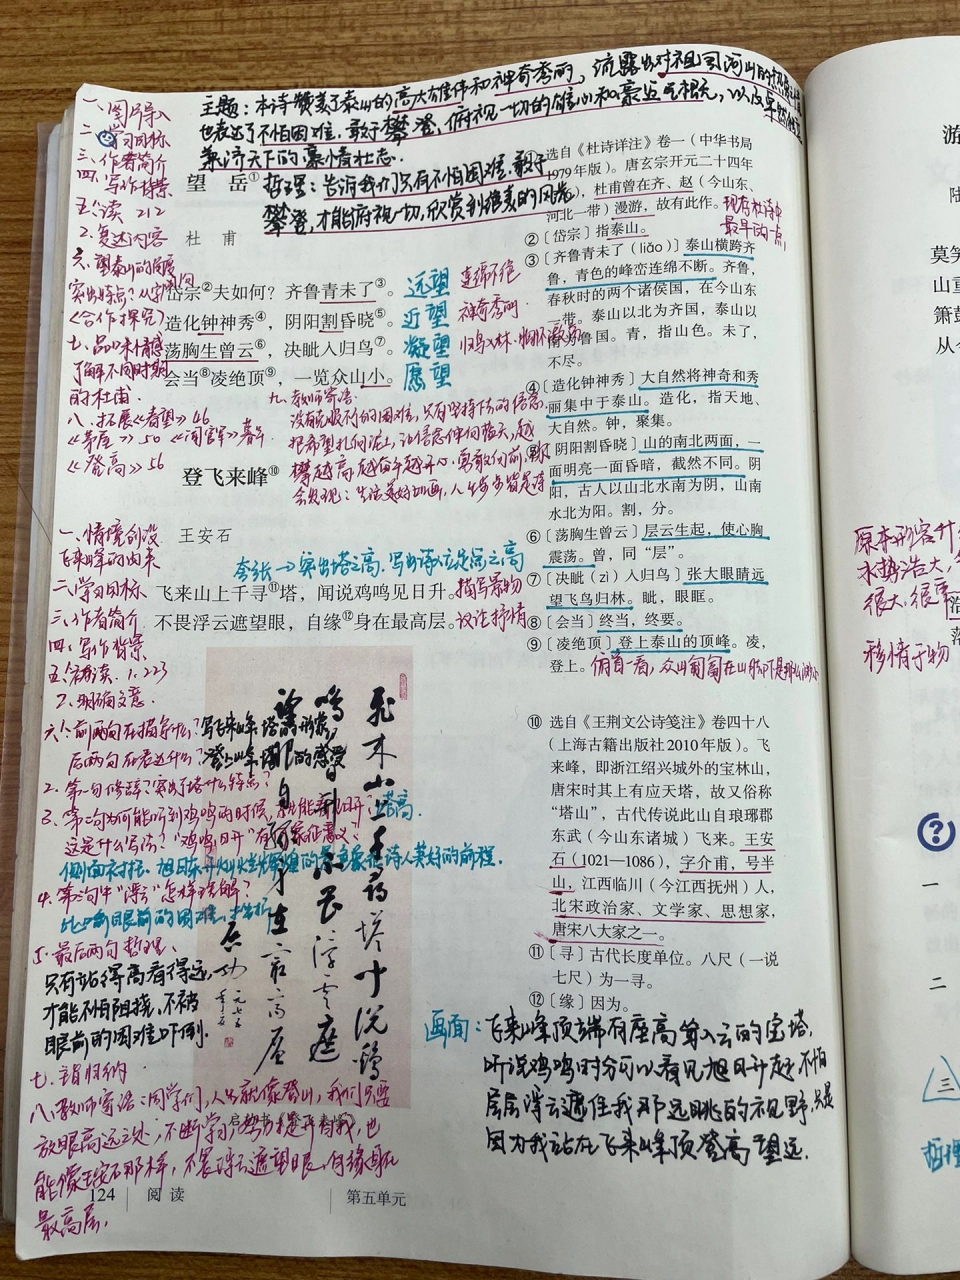 主题：本诗赞美了泰山的高大雄伟和神奇秀丽，流露出对祖国河山的
也表达了不怕困难、敢于攀登、俯视一切的雄心和豪迈气概，以及卓然独立
兼济天下的豪情壮志.
哲理：告诉我们只有不怕困难、敢于
攀登，才能俯视一切，欣赏到绝美的风光
一、图片导入
二、学习目标
三、作者简介
四、写作背景
五、读 212
2.复述内容
六、望泰山的角度
突出特点？从字词问
《合作探究》
七、品味情感
了解不同时期
的杜甫
八、拓展《春望》46
《茅屋》50 《闻官军》
《登高》56
望 岳①
杜 甫
岱宗②夫如何？齐鲁青未了③。
远望 连绵不绝
造化钟神秀④，阴阳割昏晓⑤。
近望 神奇秀丽
荡胸生曾云⑥，决眦入归鸟⑦。
凝望
会当⑧凌绝顶⑨，一览众山小。
愿望
九、教师寄语
没有克服不了的困难，只有坚持下去的信念，
把希望扎仞泥土，让信念伸向蓝天，越
攀越高，越奋斗越开心，勇敢向前，
会发现：生活美好如画，人生步步皆是诗
登飞来峰⑩
王安石
夸张→突出塔之高，写出诗人立足点之高
飞来山上千寻⑪塔，闻说鸡鸣见日升。描写景物
不畏浮云遮望眼，自缘⑫身在最高层。议论抒情
一、情境创设
飞来峰的由来
二、学习目标
三、作者简介
四、写作背景
五、朗读 1.223
2.明确文意.
六、1.前两句在描写什么？写飞来峰塔的形象，
后两句在表达什么？登上峰塔的感受
2.第一句修辞？突出了塔什么特点？
3.第二句为何能听到鸡鸣的时候，就能看到日升？塔高.
这是什么写法？“鸡鸣日升”有何象征意义？
侧面衬托. 旭日东升 灿烂辉煌的景象象征诗人美好的前程.
4.第三句中“浮云”怎样理解？
比喻眼前的困难、挫折
5.最后两句哲理、
只有站得高看得远，
才能不怕阻挠，不被
眼前的困难吓倒.
七、主旨归纳
八、教师寄语：同学们，人生就像登山，我们只要
放眼高远之处，不断学习，努力提升自我，也
能像王安石那样，不畏浮云遮望眼，自缘身在
最高层.
飞来山上千寻塔 闻说鸡
鸣见日升 不畏浮云遮
望眼 自缘身在最高层
启功
①选自《杜诗详注》卷一（中华书局
1979年版）。唐玄宗开元二十四年
，杜甫曾在齐、赵（今山东、
河北一带）漫游，故有此作。现存杜诗中
最早的一点，
②〔岱宗〕指泰山。
③〔齐鲁青未了（liǎo）〕泰山横跨齐
鲁，青色的峰峦连绵不断。齐鲁，
春秋时的两个诸侯国，在今山东
一带。泰山以北为齐国，泰山以
南为鲁国。青，指山色。未了，
不尽。
④〔造化钟神秀〕大自然将神奇和秀
丽集中于泰山。造化，指天地、
大自然。钟，聚集。
⑤〔阴阳割昏晓〕山的南北两面，一
面明亮一面昏暗，截然不同。阴
阳，古人以山北水南为阴，山南
水北为阳。割，分。
⑥〔荡胸生曾云〕层云生起，使心胸
震荡。曾，同“层”。
⑦〔决眦（zì）入归鸟〕张大眼睛远
望飞鸟归林。眦，眼眶。
⑧〔会当〕终当，终要。
⑨〔凌绝顶〕登上泰山的顶峰。凌，
登上。俯首一看，众山匍匐在山脚下是那么渺小
⑩选自《王荆文公诗笺注》卷四十八
（上海古籍出版社2010年版）。飞
来峰，即浙江绍兴城外的宝林山，
唐宋时其上有应天塔，故又俗称
“塔山”，古代传说此山自琅琊郡
东武（今山东诸城）飞来。王安
石（1021—1086），字介甫，号半
山，江西临川（今江西抚州）人，
北宋政治家、文学家、思想家，
唐宋八大家之一。
⑪〔寻〕古代长度单位。八尺（一说
七尺）为一寻。
⑫〔缘〕因为。
画面：飞来峰顶端有座高耸入云的宝塔，
听说鸡鸣时分可以看见旭日升起，不怕
层层浮云遮住我那远眺的视野，只是
因为我站在飞来峰顶登高望远.
124 阅读 第五单元
游
陆
莫笑
山重
箫鼓
从今
水势浩大，
很大，很
移情于物
？
一
二
三
哲理